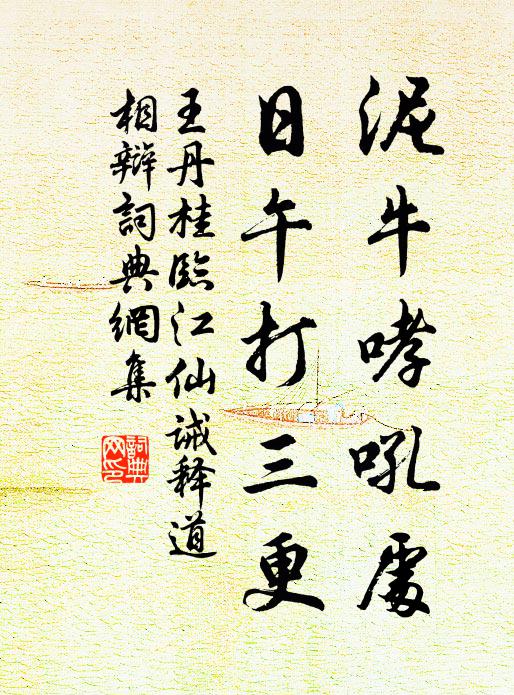 泥牛哮吼處
日午打三更
王丹桂臨江仙誡释道
相辯詞典網集
詞典
网印